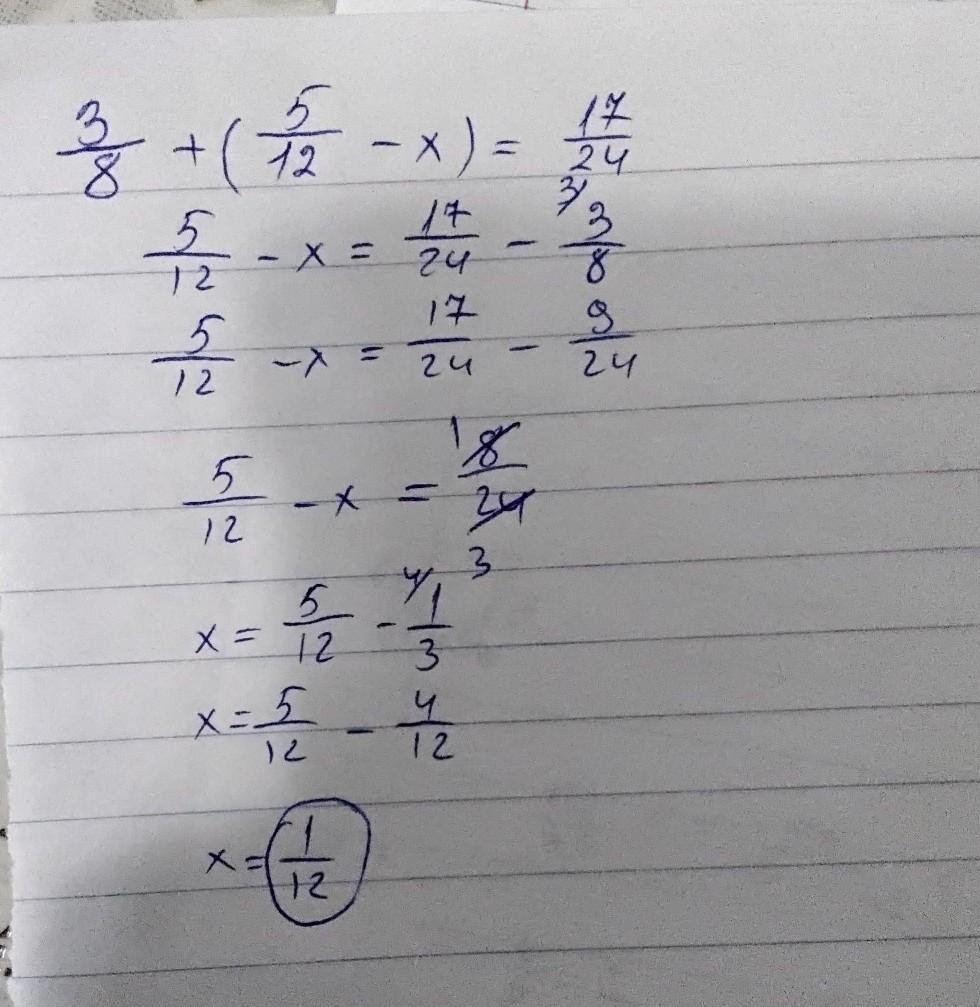 3/8 + (5/12 - x) = 17/24
5/12 - x = 17/24 - 3/ 3/8
5/12 - x = 17/24 - 9/24
5/12 - x = 1 8/24 3
x = 5/12 - 4/ 1/3
x = 5/12 - 4/12
x = 1/12